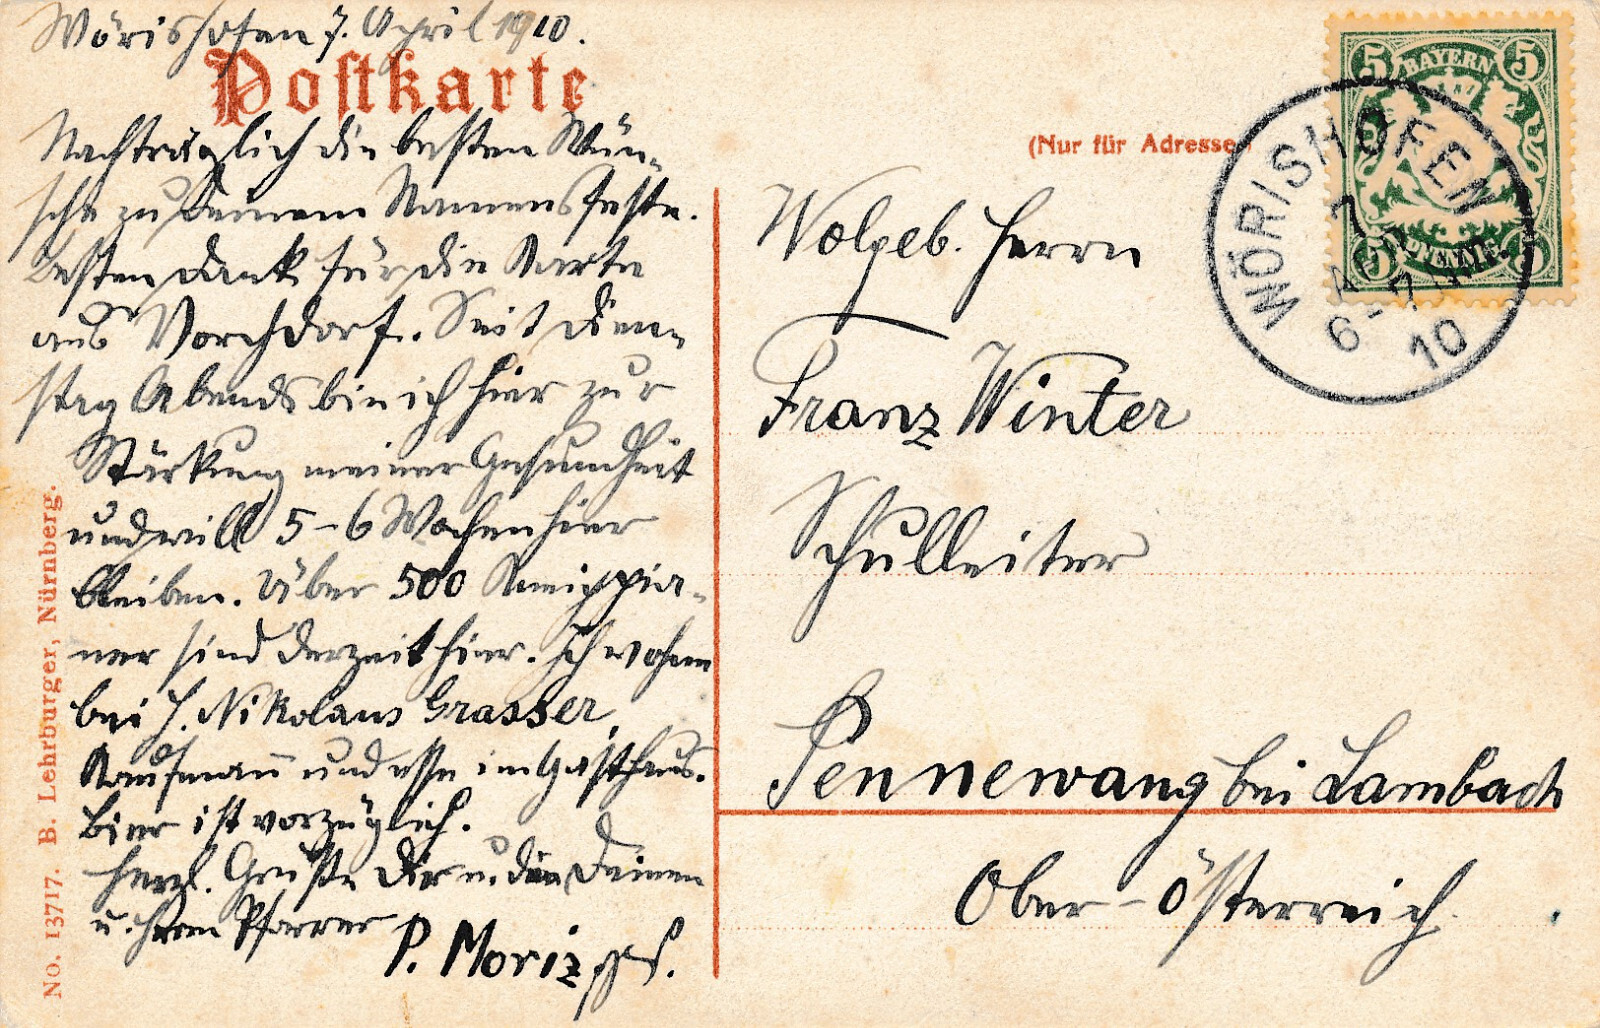 Wörishofen 7. April 1910.
Postkarte
Nachträglich die besten Wün-
sche zu Deinem Namensfeste.
Besten Dank für die Karte
aus Vorchdorf. Seit Diens-
tag Abends bin ich hier zur
Stärkung meiner Gesundheit
und will 5-6 Wochen hier
bleiben. Über 500 Kneippia-
ner sind derzeit hier. Ich wohne
bei H. Nikolaus Grasser,
Kaufmann und esse im Gasthaus.
Bier ist vorzüglich.
Herzl. Grüße Dir u. den Deinen
u. Herrn Pfarrer
P. Moriz
No. 13717. B. Lehrburger, Nürnberg.
(Nur für Adresse)
5 BAYERN 5
PFENNIG
WÖRISHOFEN
7 APR
6-7 NM.
10
Wolgeb. Herrn
Franz Winter
Schulleiter
Pennewang bei Lambach
Ober-Österreich.